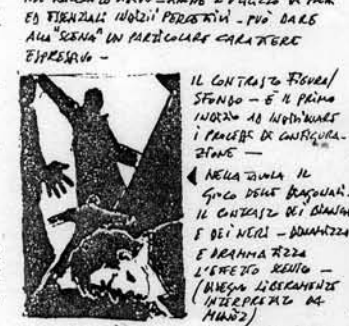 ED ESSENZIALI INDIZI PERCETTIVI - PUÒ DARE
ALLA "SCENA" UN PARTICOLARE CARATTERE
ESPRESSIVO -
IL CONTRASTO FIGURA/
SFONDO - È IL PRIMO
INDIZIO AD INDIVIDUARE
I PROCESSI DI CONFIGURA-
ZIONE -
NELLA TAVOLA IL
GIOCO DELLE DIAGONALI.
IL CONTRASTO DEI BIANCHI
E DEI NERI - DINAMIZZA
E DRAMMATIZZA
L'EFFETTO SCENICO -
(DISEGNO LIBERAMENTE
INTERPRETATO DA
MUÑOZ)